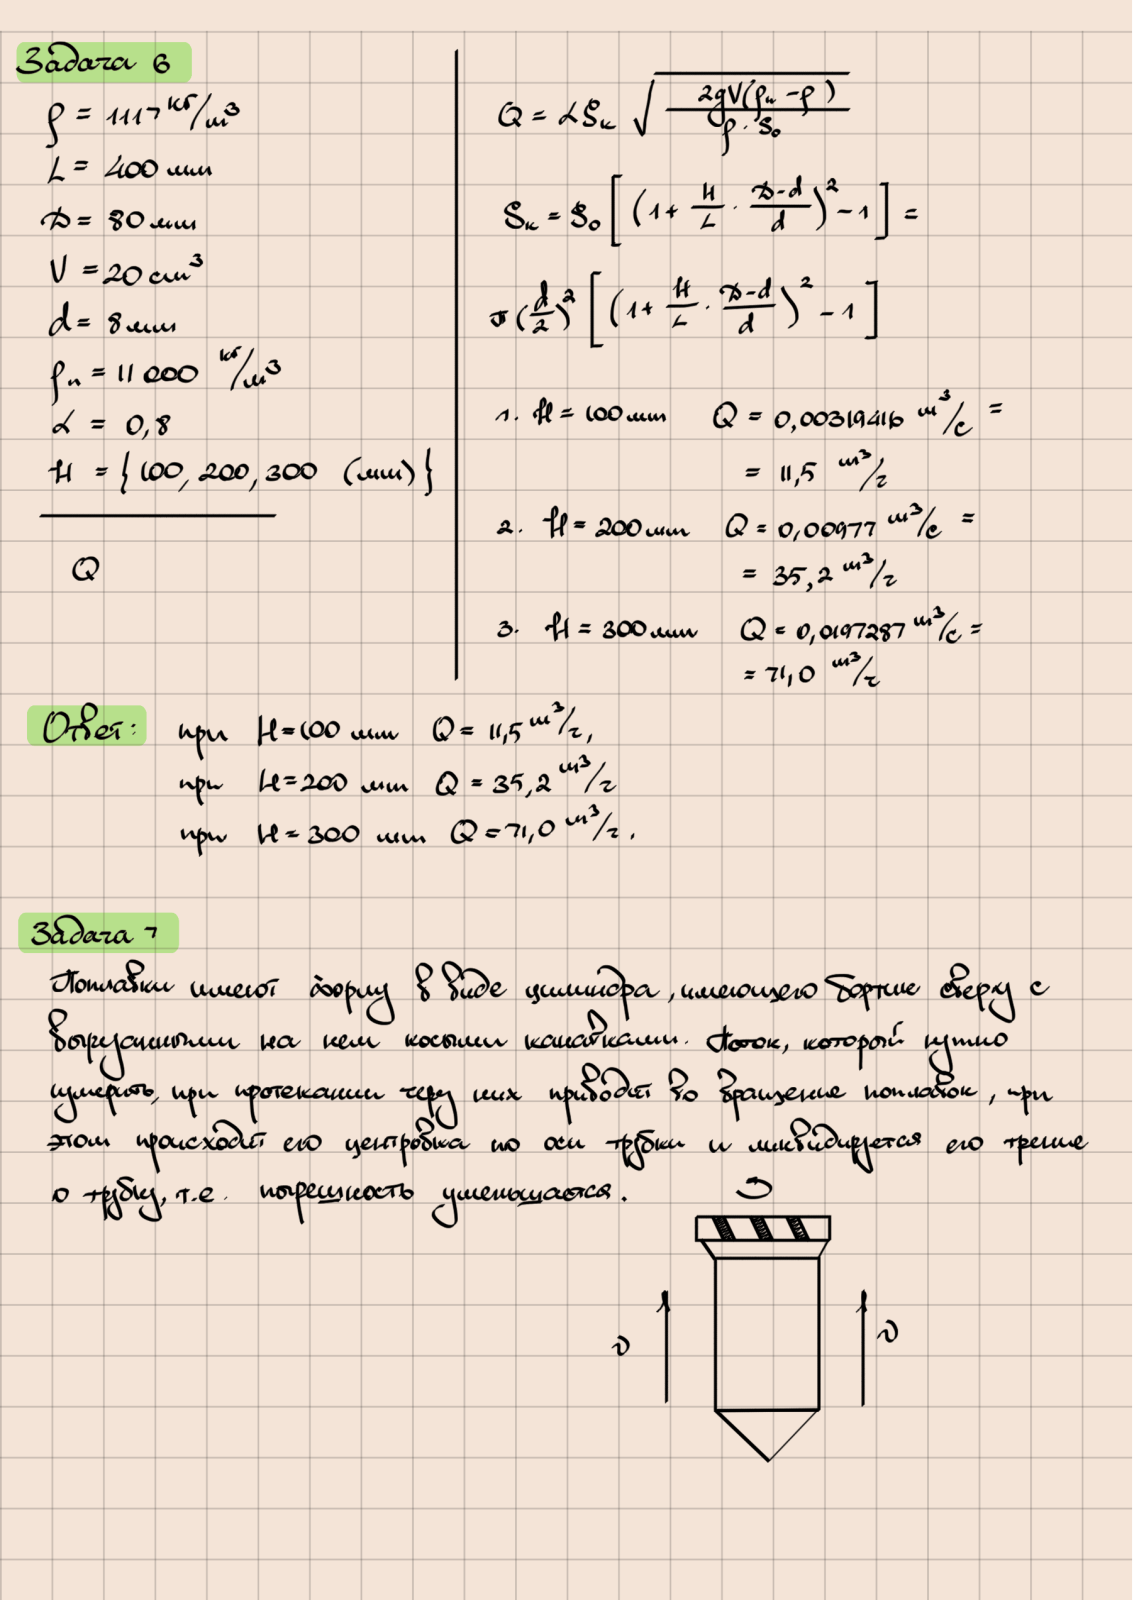 Задача 6
ρ = 1117 кг/м³
L = 400 мм
D = 80 мм
V = 20 см³
d = 8 мм
ρп = 11 000 кг/м³
α = 0,8
H = {100, 200, 300 (мм)}
Q
Q = αSк √(2gV(ρп - ρ) / ρ · S₀)
Sк = S₀ [(1 + H/L · (D-d)/d)² - 1] =
π(d/2)² [(1 + H/L · (D-d)/d)² - 1]
1. H = 100 мм Q = 0,00319416 м³/с =
= 11,5 м³/ч
2. H = 200 мм Q = 0,00977 м³/с =
= 35,2 м³/ч
3. H = 300 мм Q = 0,0197287 м³/с =
= 71,0 м³/ч
Ответ: при H = 100 мм Q = 11,5 м³/ч,
при H = 200 мм Q = 35,2 м³/ч
при H = 300 мм Q = 71,0 м³/ч.
Задача 7
Поплавки имеют форму в виде цилиндра, имеющего бортик сверху с
вырезанными на нем косыми канавками. Поток, который нужно
измерить, при протекании через них приводит во вращение поплавок, при
этом происходит его центровка по оси трубки и ликвидируется его трение
о трубку, т.е. погрешность уменьшается.
υ υ